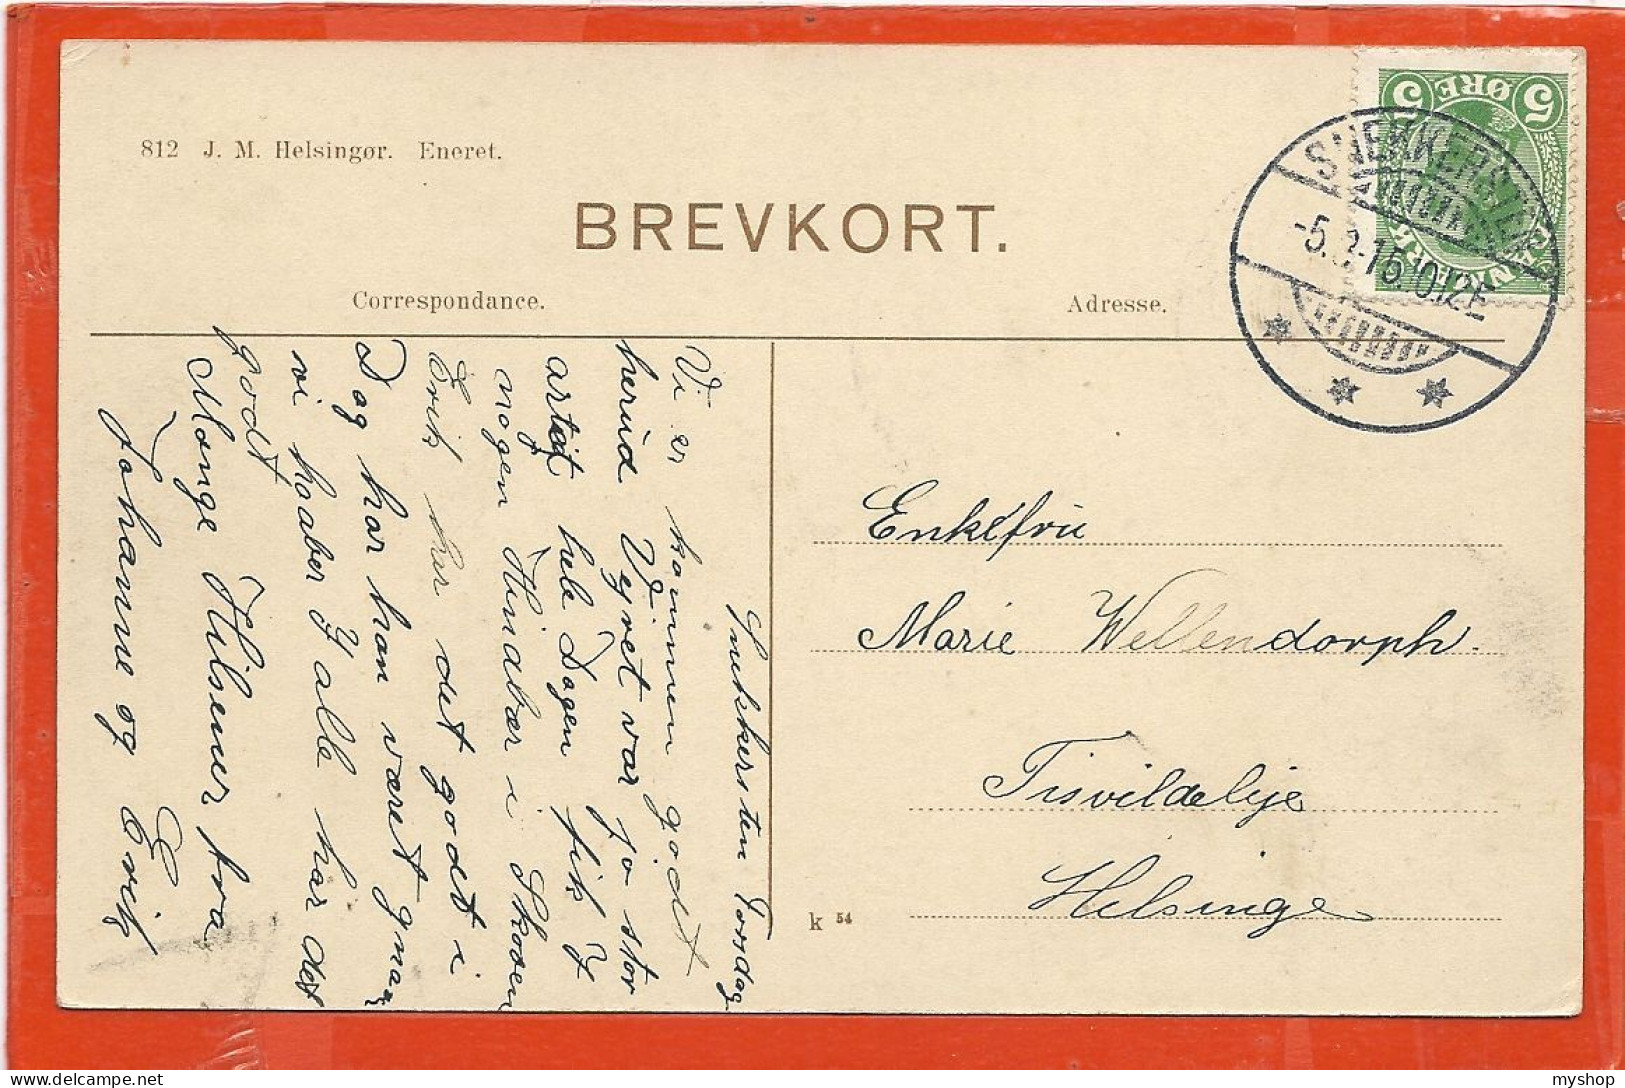 812 J. M. Helsingør. Eneret.
BREVKORT.
Correspondance.
Adresse.
5 ØRE 5
SNEKKERSTEN
-5.8-15.10.12E
Snekkersten Torsdag
Vi er kommen godt
herud Vejret var jo stor
artigt hele Dagen fik I
nogen Hindbær i Skoven
Erik har det godt i
Dag har han været gnaven
vi haaber I alle har det
godt
Mange Hilsener fra
Johanne og Erik
Enkefru
Marie Wellendorph.
Tisvildeleje
Helsinge
k 54
myshop